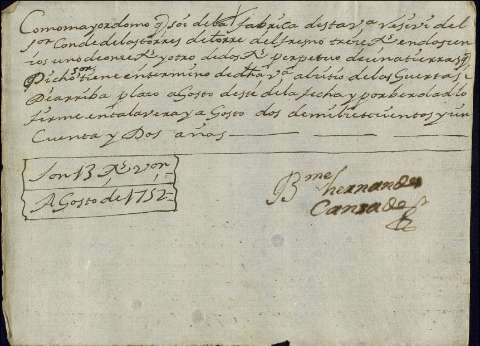 Como mayordomo q̃ soi de la fabrica desta va Resivi del
sor Conde de las torres de torre del fresno treze Rs en dos zen
sos uno de onze Rs y otro de dos Rs perpetuo de una tierra q̃
Dicho sor tiene en termino de dha va al sitio de las Guertas
De arriba plazo agosto deste de la fecha y por berdad lo
firme en talavera y Agosto dos de mil setecientos y zin
Cuenta y Dos años
Son 13 Rs von
Agosto de 1752
Bme hernandez
Canzado